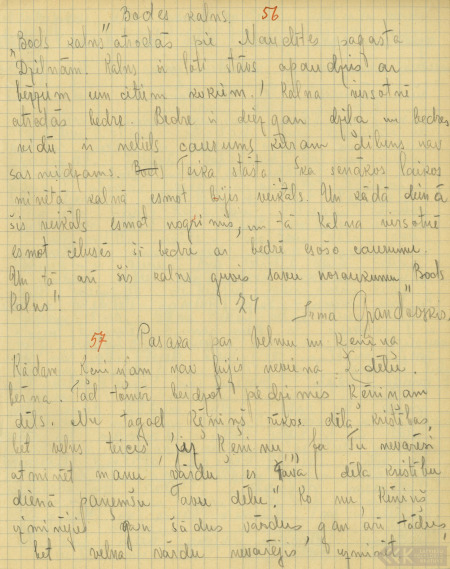 Bodes kalns. 56
"Bods kalns" atrodās pie Naudītes pagasta
Dzilnām. Kalns ir ļoti stāvs, apaudzis ar
bērziem un citiem kokiem. Kalna virsotnē
atrodās bedre. Bedre ir diezgan dziļa un bedres
vidū ir neliels caurums kuram dibens nav
sasniedzams. Teika stāsta, ka senākos laikos
minētā kalnā esmot bijis veikals. Un kādā dienā
šis veikals esmot nogrimis, un tā kalna virsotnē
esmot cēlusēs šī bedre ar bedrē esošo caurumu.
Un tā arī šis kalns guvis savu nosaukumu "Bods
kalns".
24 Irma
57 Pasaka par velnu un ķēniņa
dēlu.
Kādam ķēniņam nav bijis neviena
bērna. Tad tomēr beidzot piedzimis ķēniņam
dēls. Nu tagad ķēniņš rīkos dēla kristības,
bet velns teicis uz ķēniņu, ja Tu nevarēsi
atminēt manu vārdu es tava dēla kristību
dienā paņemšu Tavu dēlu." Ko nu ķēniņš
uzminējis gan šādus vārdus, gan arī tādus,
bet velna vārdu nevarējis uzminēt